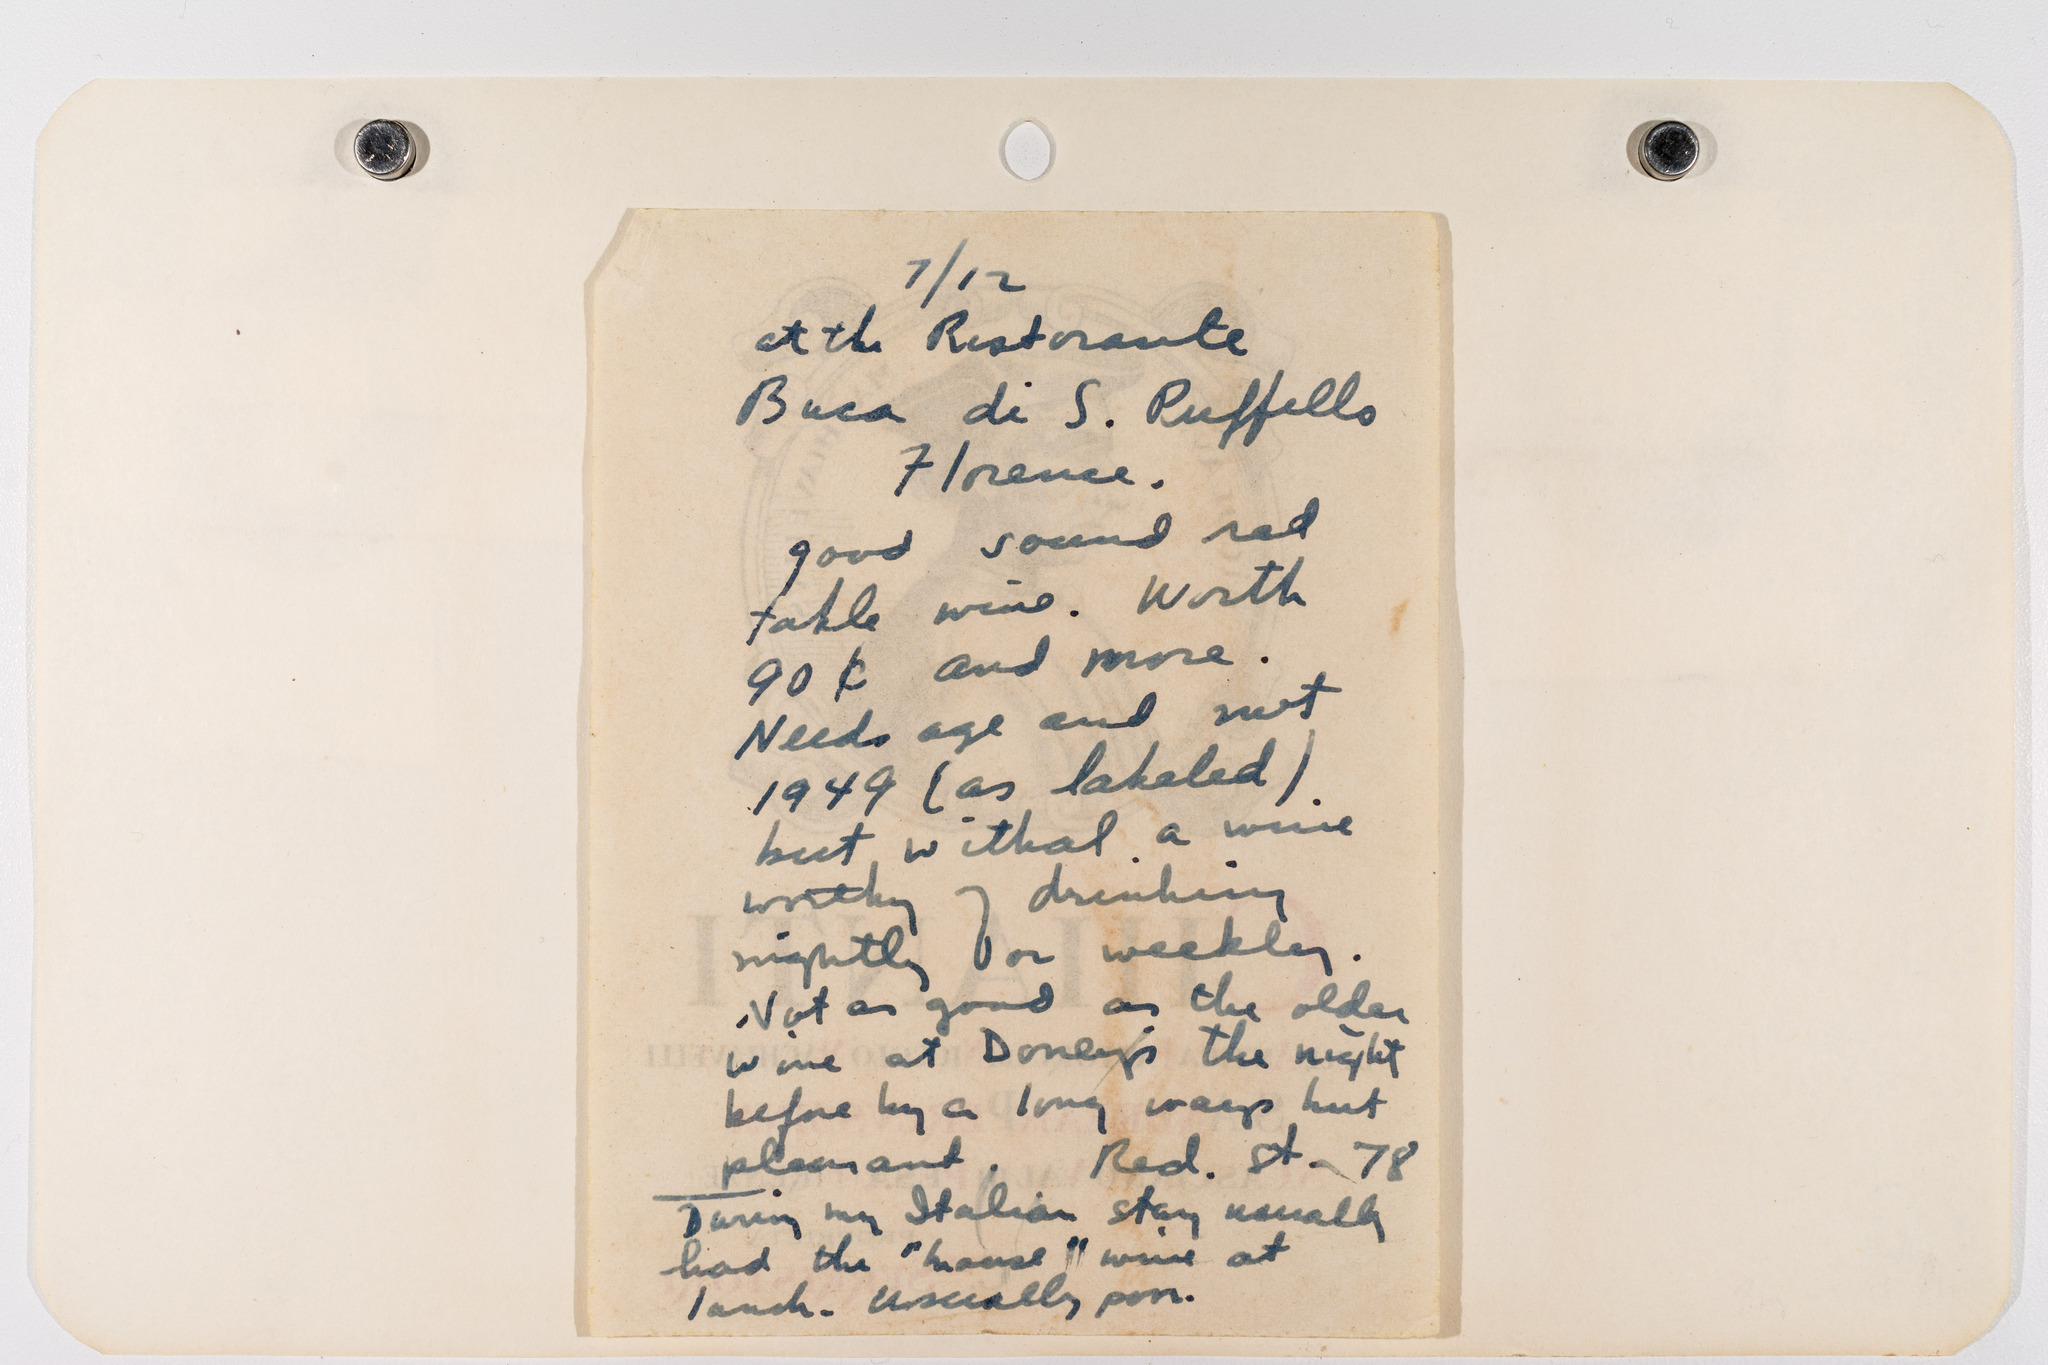 7/12
at the Ristorante
Buca di S. Ruffillo
Florence.
good sound red
table wine. Worth
90¢ and more.
Needs age and not
1949 (as labeled)
but withal a wine
worthy of drinking
nightly or weekly.
Not as good as the older
wine at Doney's the night
before by a long ways but
pleasant. Red. St - 78
During my Italian stay usually
had the "house" wine at
lunch. Usually poor.
CHIANTI